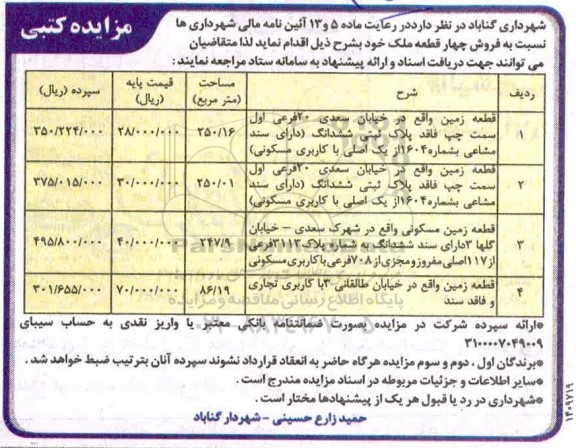 مزایده کتبی
شهرداری گناباد در نظر دارددر رعایت ماده ۵ و۱۳ آئین نامه مالی شهرداری ها
نسبت به فروش چهار قطعه ملک خود بشرح ذیل اقدام نماید لذا متقاضیان
می توانند جهت دریافت اسناد و ارائه پیشنهاد به سامانه ستاد مراجعه نمایند:
ردیف شرح مساحت (متر مربع) قیمت پایه (ریال) سپرده (ریال)
قطعه زمین واقع در خیابان سعدی ۲۰فرعی اول
۱ سمت چپ فاقد پلاک ثبتی ششدانگ (دارای سند ۲۵۰/۱۶ ۲۸/۰۰۰/۰۰۰ ۳۵۰/۲۲۴/۰۰۰
مشاعی بشماره۱۶۰۴از یک اصلی با کاربری مسکونی)
قطعه زمین واقع در خیابان سعدی ۲۰فرعی اول
۲ سمت چپ فاقد پلاک ثبتی ششدانگ (دارای سند ۲۵۰/۰۱ ۳۰/۰۰۰/۰۰۰ ۳۷۵/۰۱۵/۰۰۰
مشاعی بشماره۱۶۰۴از یک اصلی با کاربری مسکونی)
قطعه زمین مسکونی واقع در شهرک سعدی – خیابان
۳ گلها ۳دارای سند ششدانگ به شماره پلاک ۳۱۱۲فرعی ۲۴۷/۹ ۴۰/۰۰۰/۰۰۰ ۴۹۵/۸۰۰/۰۰۰
از۱۱۷اصلی مفروز و مجزی از ۷۰۸فرعی با کاربری مسکونی
۴ قطعه زمین واقع در خیابان طالقانی ۲با کاربری تجاری ۸۶/۱۹ ۷۰/۰۰۰/۰۰۰ ۳۰۱/۶۵۵/۰۰۰
و فاقد سند
پایگاه اطلاع رسانی مناقصه و مزایده
*ارائه سپرده شرکت در مزایده بصورت ضمانتنامه بانکی معتبر یا واریز نقدی به حساب سیبای
۳۱۰۰۰۰۷۰۴۹۰۰۹
*برندگان اول ، دوم و سوم مزایده هرگاه حاضر به انعقاد قرارداد نشوند سپرده آنان بترتیب ضبط خواهد شد .
*سایر اطلاعات و جزئیات مربوطه در اسناد مزایده مندرج است .
*شهرداری در رد یا قبول هر یک از پیشنهادها مختار است .
حمید زارع حسینی – شهردار گناباد
۱۴۰۹۷۱۹